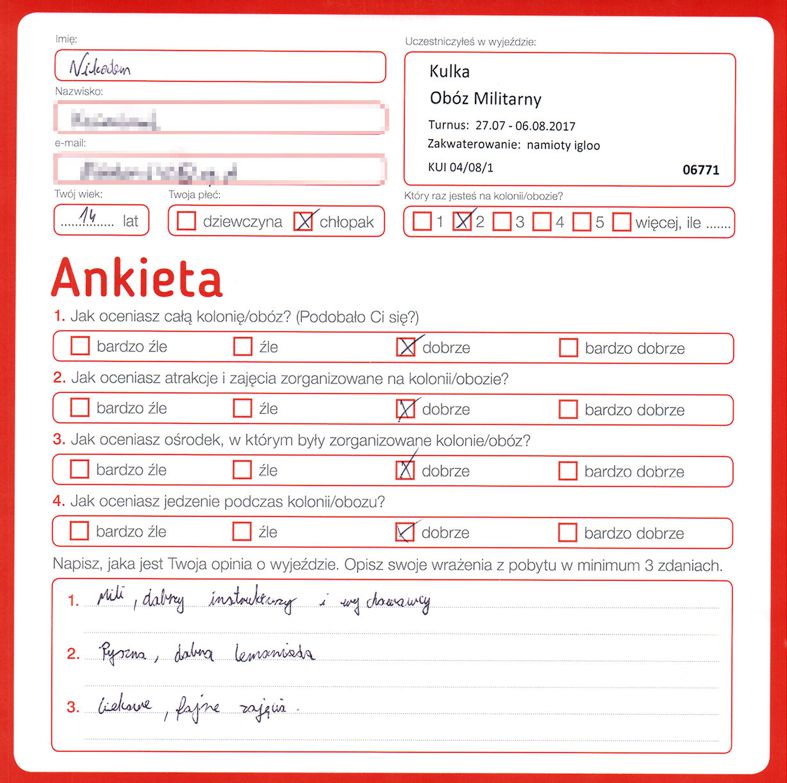 Imię:
Nikodem
Uczestniczyłeś w wyjeździe:
Kulka
Obóz Militarny
Turnus: 27.07 - 06.08.2017
Zakwaterowanie: namioty igloo
KUI 04/08/1 06771
Nazwisko:
e-mail:
Twój wiek:
14 lat
Twoja płeć:
dziewczyna chłopak
Który raz jesteś na kolonii/obozie?
1 2 3 4 5 więcej, ile .......
Ankieta
1. Jak oceniasz całą kolonię/obóz? (Podobało Ci się?)
bardzo źle źle dobrze bardzo dobrze
2. Jak oceniasz atrakcje i zajęcia zorganizowane na kolonii/obozie?
bardzo źle źle dobrze bardzo dobrze
3. Jak oceniasz ośrodek, w którym były zorganizowane kolonie/obóz?
bardzo źle źle dobrze bardzo dobrze
4. Jak oceniasz jedzenie podczas kolonii/obozu?
bardzo źle źle dobrze bardzo dobrze
Napisz, jaka jest Twoja opinia o wyjeździe. Opisz swoje wrażenia z pobytu w minimum 3 zdaniach.
1. Mili, dobrzy instruktorzy i wychowawcy
2. Pyszna, dobra lemoniada
3. Ciekawe, fajne zajęcia.